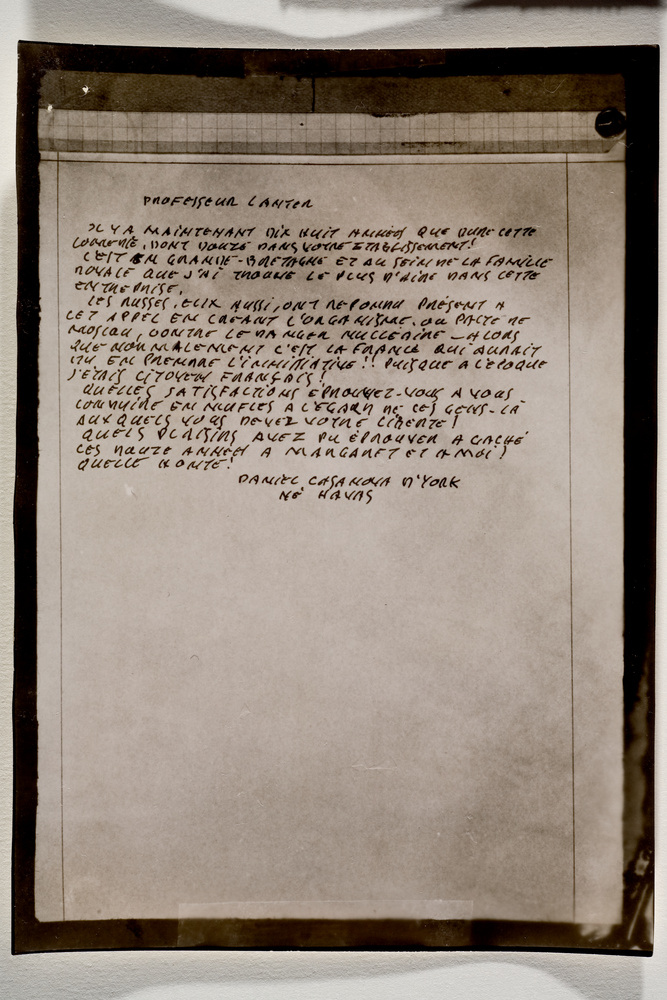 PROFESSEUR LANTER
IL Y A MAINTENANT DIX HUIT ANNÉES QUE DURE CETTE
COMEDIE, DONT DOUZE DANS VOTRE ETABLISSEMENT!
C'EST EN GRANDE-BRETAGNE ET AU SEIN DE LA FAMILLE
ROYALE QUE J'AI TROUVÉ LE PLUS D'AIDE DANS CETTE
ENTREPRISE.
LES RUSSES, EUX AUSSI, ONT REPONDU PRÉSENT A
CET APPEL EN CREANT L'ORGANISME, DU PACTE DE
MOSCOU, CONTRE LE DANGER NUCLEAIRE - ALORS
QUE NORMALEMENT C'EST LA FRANCE QUI AURAIT
DU EN PRENDRE L'INNITIATIVE!! PUISQUE A L'ÉPOQUE
J'ÉTAIS CITOYEN FRANÇAIS!
QUELLES SATISFACTIONS EPROUVEZ-VOUS A VOUS
CONDUIRE EN MUFLES A L'EGARD DE CES GENS-LÀ
AUXQUELS VOUS DEVEZ VOTRE LIBERTE!
QUELS PLAISIRS AVEZ PU ÉPROUVER A GACHÉ
CES DOUZE ANNÉES A MARGARET ET A MOI!
QUELLE HONTE!
DANIEL CASANOVA D'YORK
NÉ HAVAS